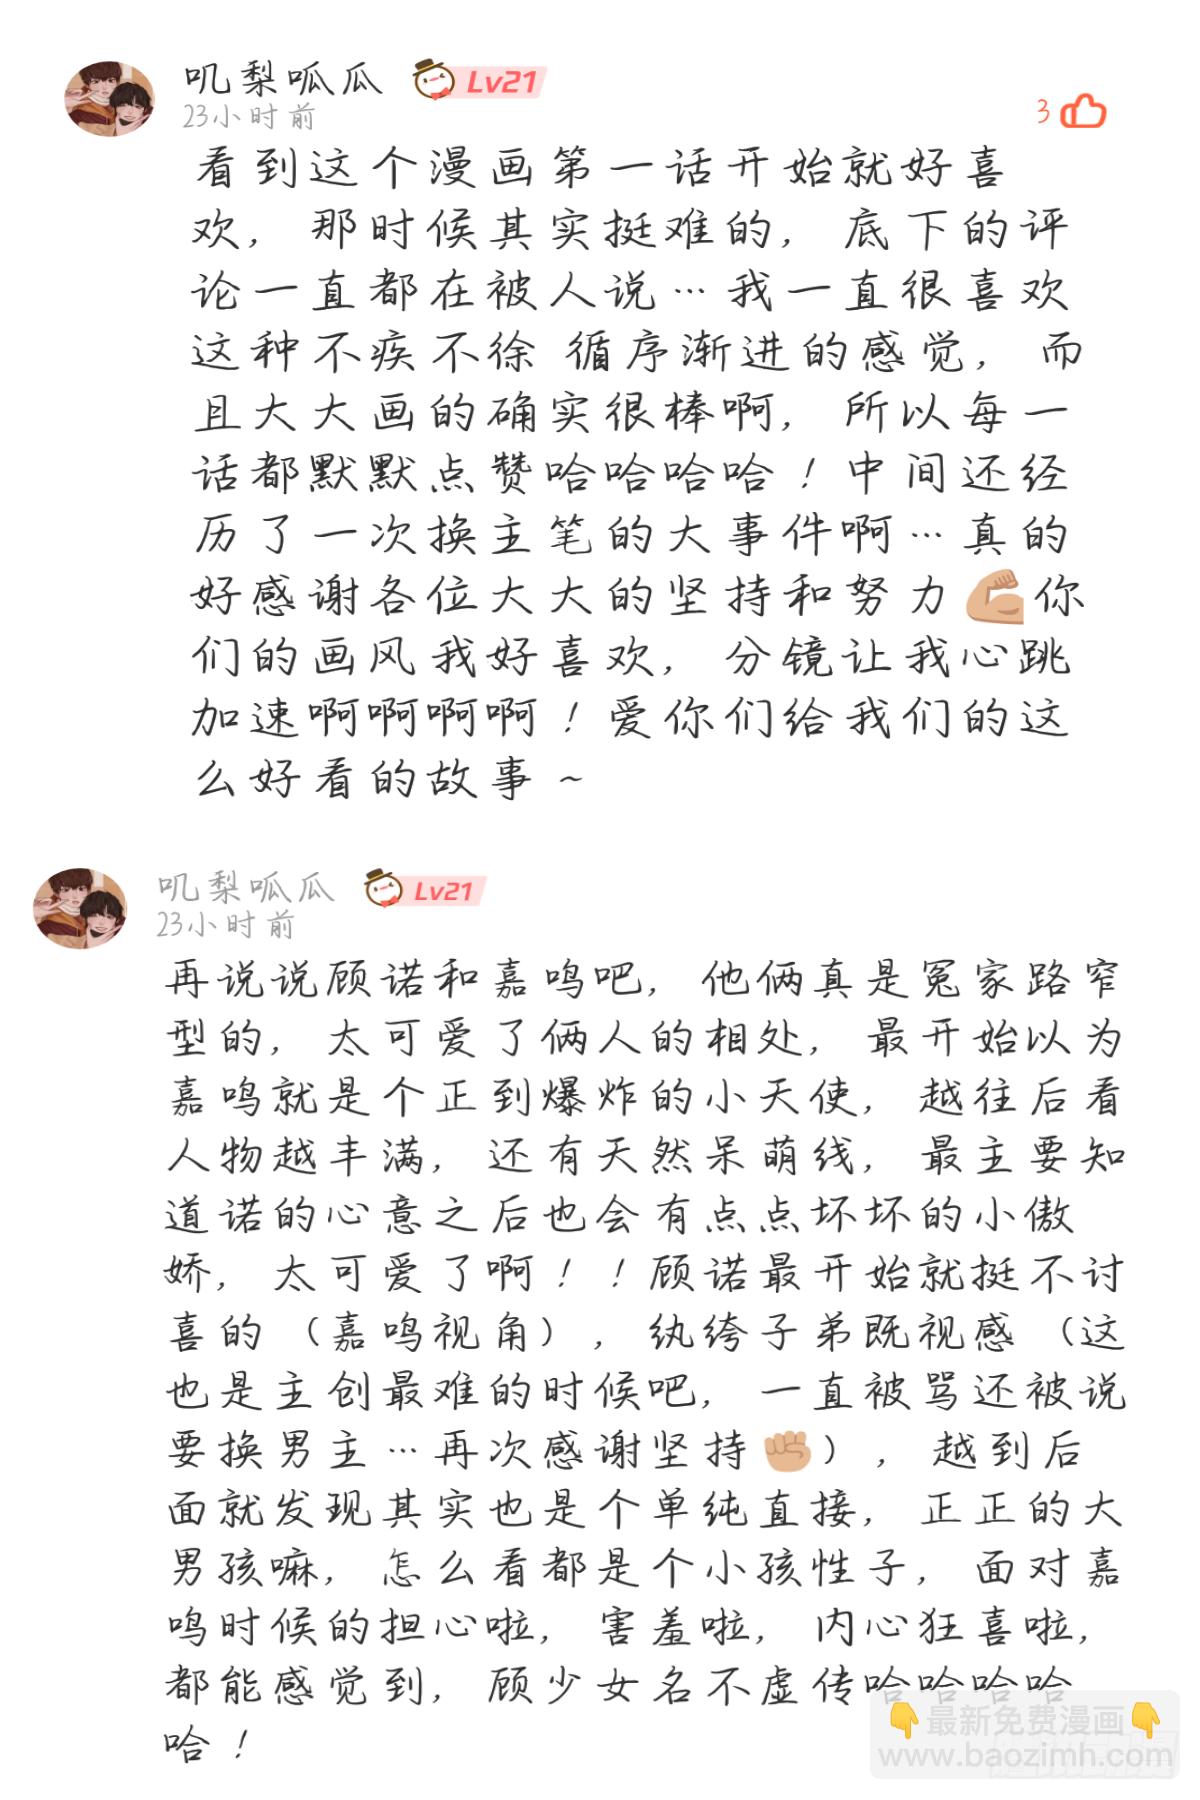 叽梨呱瓜 Lv21
23小时前
3
看到这个漫画第一话开始就好喜
欢，那时候其实挺难的，底下的评
论一直都在被人说…我一直很喜欢
这种不疾不徐 循序渐进的感觉，而
且大大画的确实很棒啊，所以每一
话都默默点赞哈哈哈哈！中间还经
历了一次换主笔的大事件啊…真的
好感谢各位大大的坚持和努力💪🏼你
们的画风我好喜欢，分镜让我心跳
加速啊啊啊啊！爱你们给我们的这
么好看的故事～
叽梨呱瓜 Lv21
23小时前
再说说顾诺和嘉鸣吧，他俩真是冤家路窄
型的，太可爱了俩人的相处，最开始以为
嘉鸣就是个正到爆炸的小天使，越往后看
人物越丰满，还有天然呆萌线，最主要知
道诺的心意之后也会有点点坏坏的小傲
娇，太可爱了啊！！顾诺最开始就挺不讨
喜的（嘉鸣视角），纨绔子弟既视感（这
也是主创最难的时候吧，一直被骂还被说
要换男主…再次感谢坚持✊🏼），越到后
面就发现其实也是个单纯直接，正正的大
男孩嘛，怎么看都是个小孩性子，面对嘉
鸣时候的担心啦，害羞啦，内心狂喜啦，
都能感觉到，顾少女名不虚传哈哈哈哈
哈！
👇最新免费漫画👇
www.baozimh.com